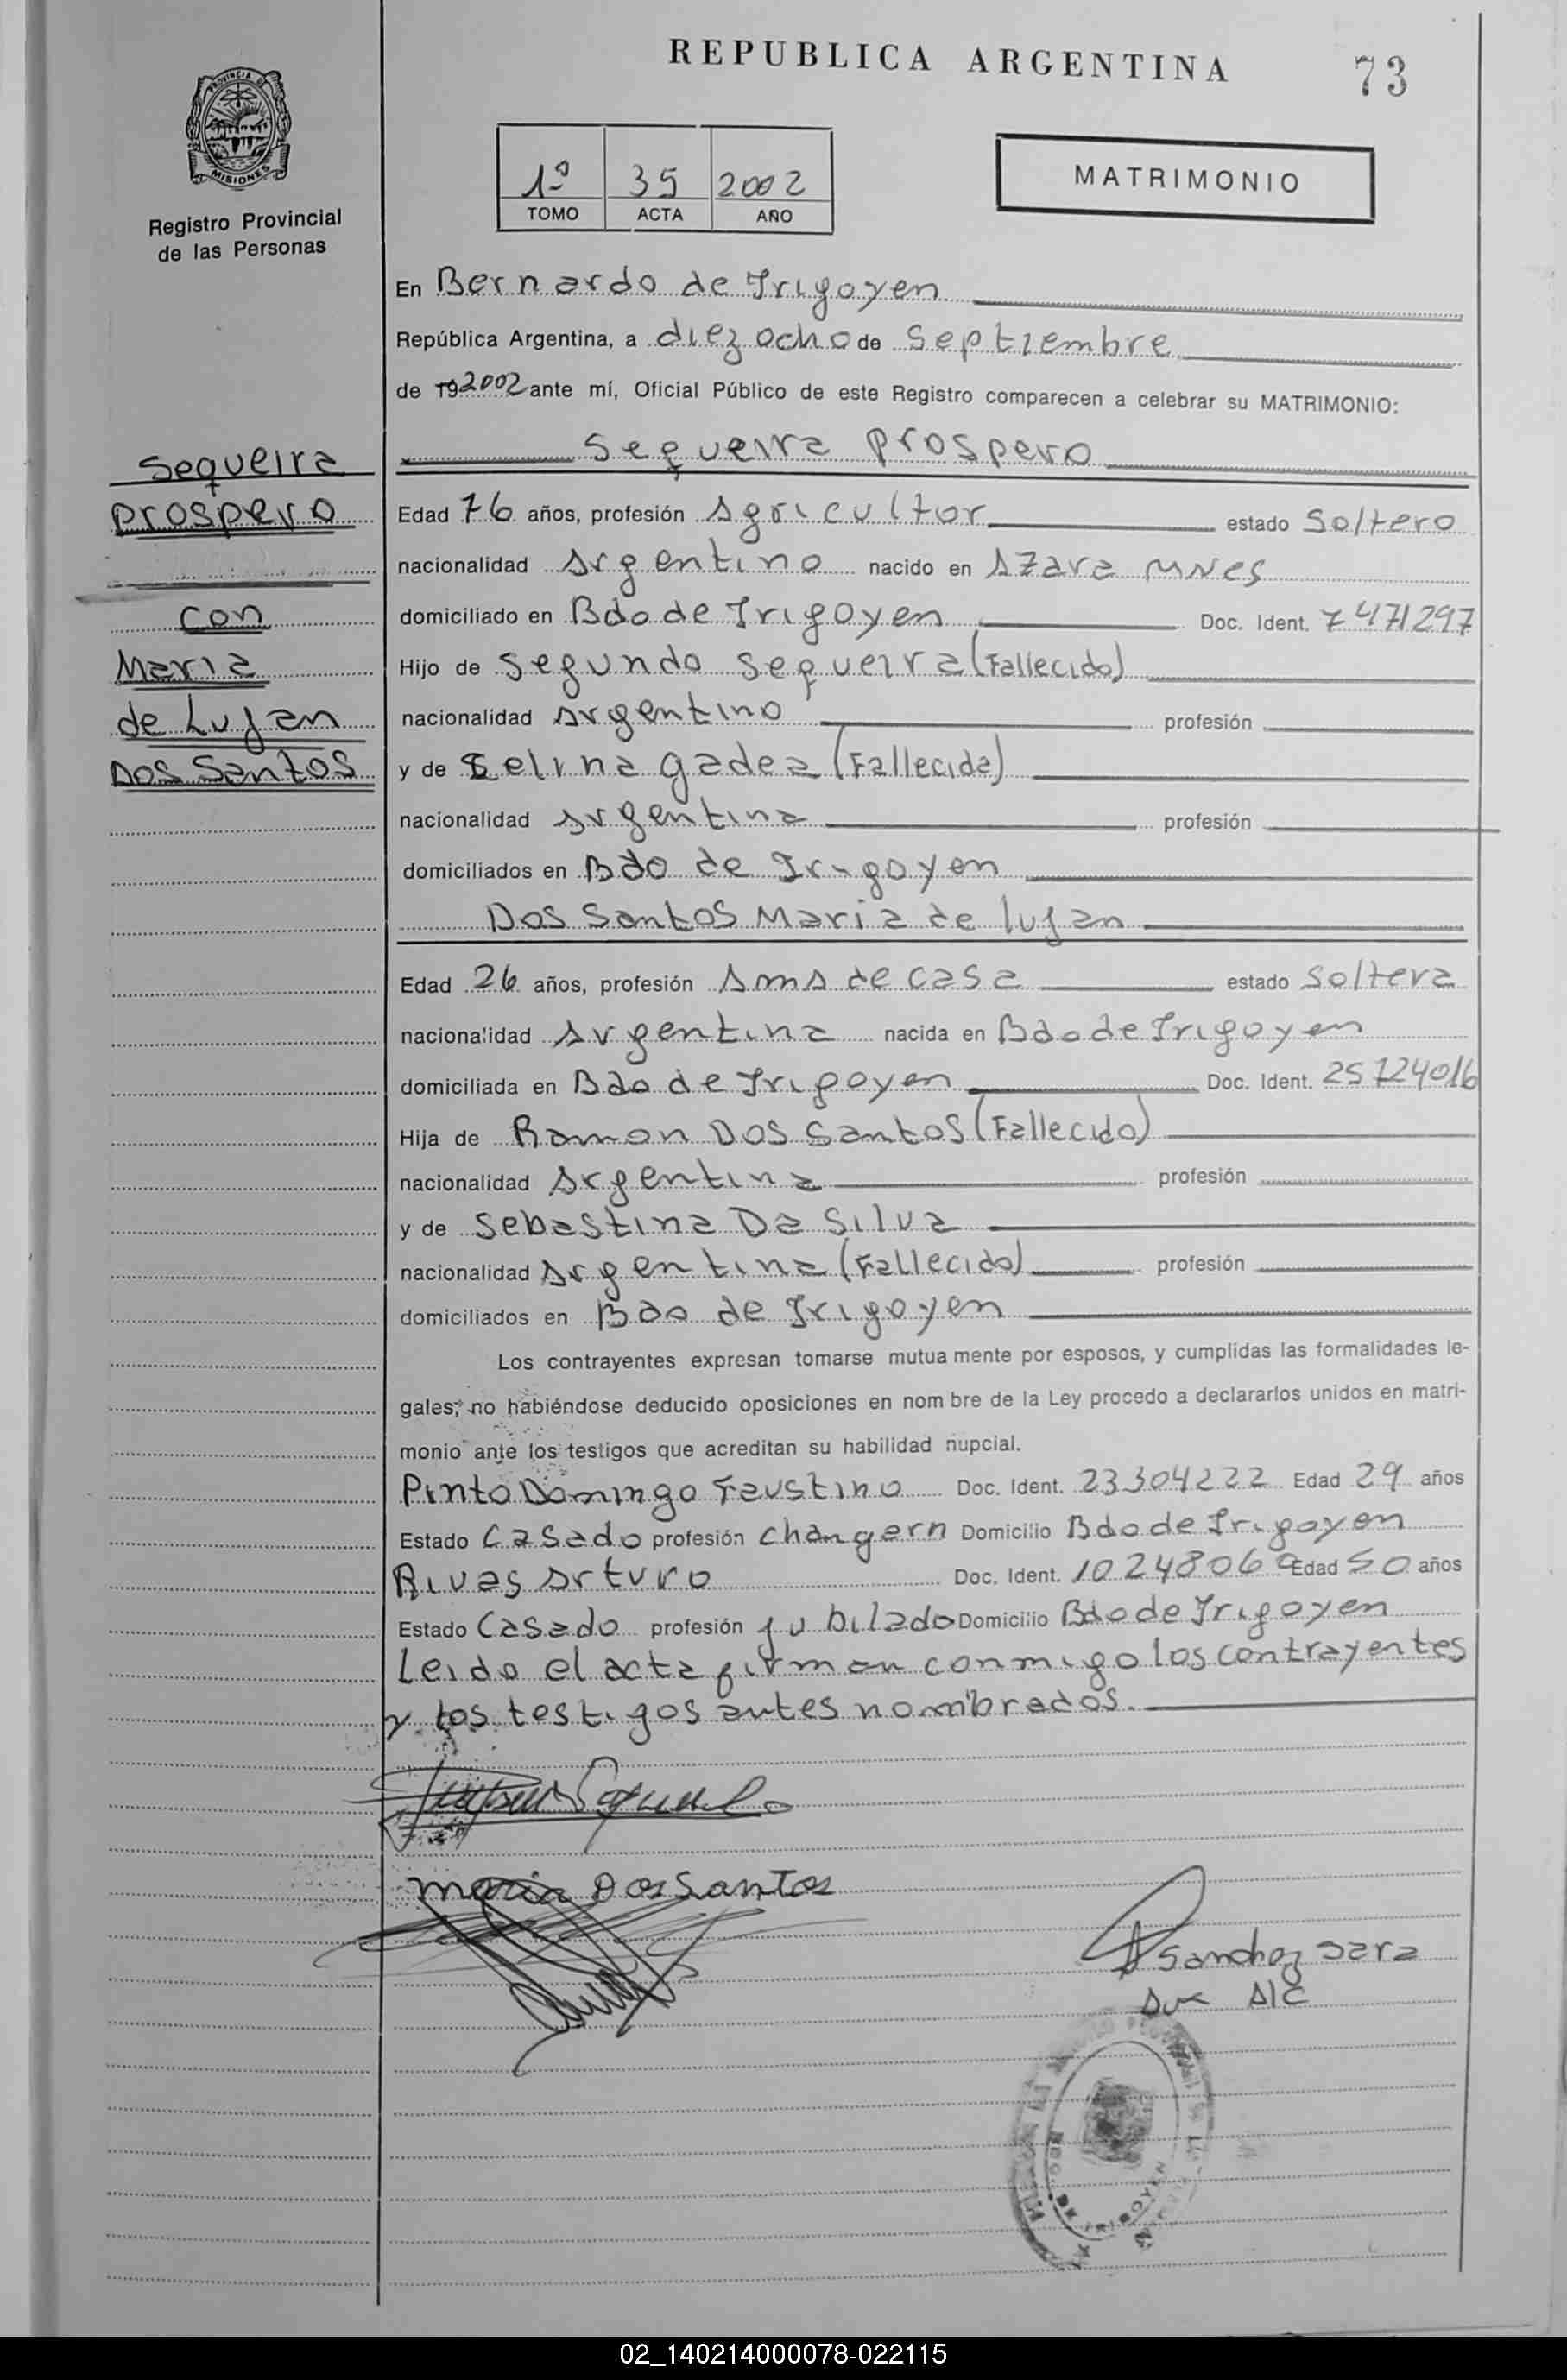 REPUBLICA ARGENTINA
73
PROVINCIA DE
MISIONES
Registro Provincial
de las Personas
1º 35 2002
TOMO ACTA AÑO
MATRIMONIO
En Bernardo de Irigoyen
República Argentina, a diez ocho de septiembre
de 192002 ante mí, Oficial Público de este Registro comparecen a celebrar su MATRIMONIO:
Sequeira
prospero
con
Maria
de Lujan
Dos Santos
Sequeira prospero
Edad 76 años, profesión Agricultor estado soltero
nacionalidad Argentino nacido en Azara MNes
domiciliado en Bdo de Irigoyen Doc. Ident. 7471297
Hijo de Segundo Sequeira (Fallecido)
nacionalidad Argentino profesión
y de Selina gadea (Fallecida)
nacionalidad Argentina profesión
domiciliados en Bdo de Irigoyen
Dos Santos Maria de lujan
Edad 26 años, profesión Ama de casa estado soltera
nacionalidad Argentina nacida en Bdo de Irigoyen
domiciliada en Bdo de Irigoyen Doc. Ident. 25724016
Hija de Ramon Dos Santos (Fallecido)
nacionalidad Argentina profesión
y de Sebastina Da Silva
nacionalidad Argentina (Fallecido) profesión
domiciliados en Bdo de Irigoyen
Los contrayentes expresan tomarse mutua mente por esposos, y cumplidas las formalidades le-
gales, no habiéndose deducido oposiciones en nom bre de la Ley procedo a declararlos unidos en matri-
monio ante los testigos que acreditan su habilidad nupcial.
Pinto Domingo Faustino Doc. Ident. 23304222 Edad 29 años
Estado Casado profesión changarn Domicilio Bdo de Irigoyen
Rivas Arturo Doc. Ident. 10248060 Edad 50 años
Estado Casado profesión jubilado Domicilio Bdo de Irigoyen
Leido el acta firman conmigo los contrayentes
y los testigos antes nombrados.
Maria Dos Santos
Sanchez Sara
02_140214000078-022115